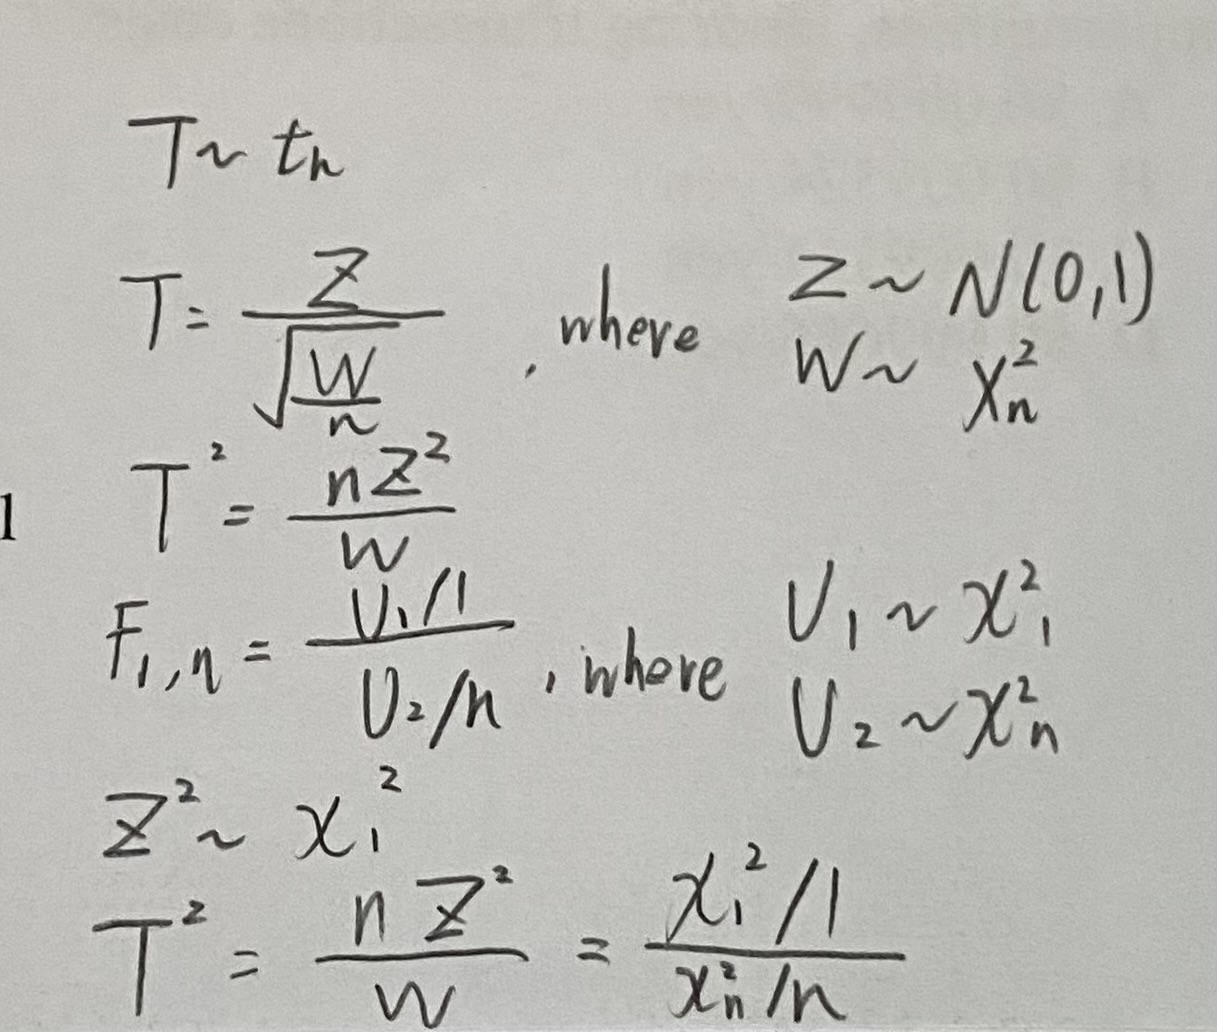 T ~ tₙ
T = Z / √(W/n) , where Z ~ N(0,1)
W ~ χ²ₙ
1 T² = nZ² / W
F₁,ₙ = (U₁/1) / (U₂/n) , where U₁ ~ χ²₁
U₂ ~ χ²ₙ
Z² ~ χ₁²
T² = nZ² / W = (χ₁²/1) / (χ²ₙ/n)